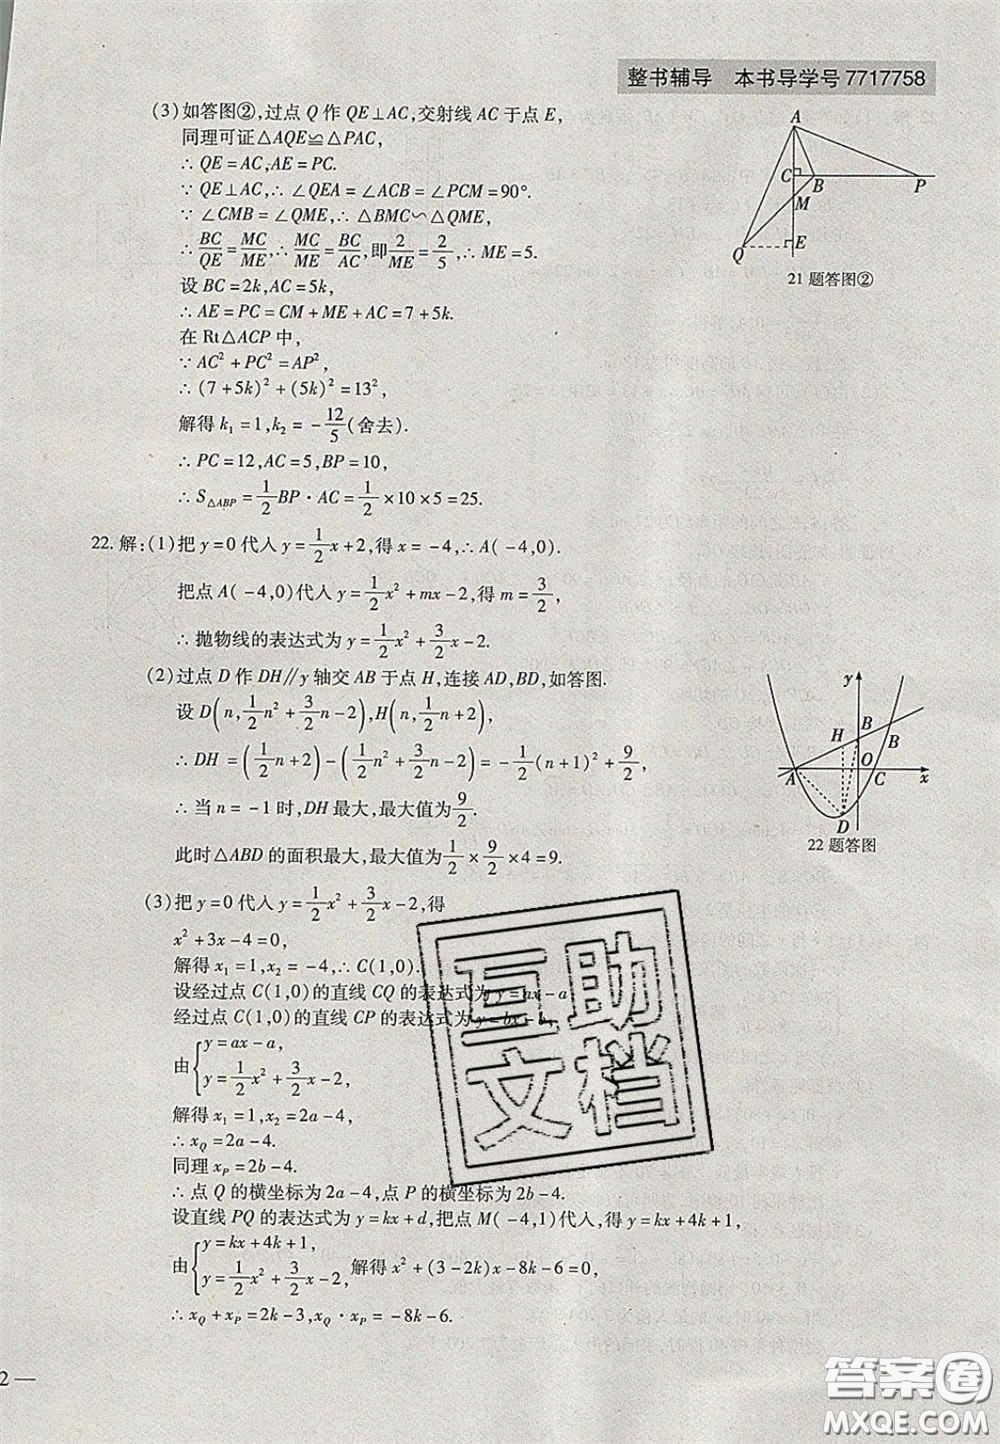 整书辅导 本书导学号7717758
(3)如答图②,过点Q作QE⊥AC,交射线AC于点E,
同理可证△AQE≌△PAC,
∴QE=AC,AE=PC.
∵QE⊥AC,∴∠QEA=∠ACB=∠PCM=90°.
∵∠CMB=∠QME,∴△BMC∽△QME,
∴BC/QE=MC/ME,∴MC/ME=BC/AC,即2/ME=2/5,∴ME=5.
设BC=2k,AC=5k,
∴AE=PC=CM+ME+AC=7+5k.
在Rt△ACP中,
∵AC²+PC²=AP²,
∴(7+5k)²+(5k)²=13²,
解得k₁=1,k₂=-12/5(舍去).
∴PC=12,AC=5,BP=10,
∴S△ABP=1/2BP·AC=1/2×10×5=25.
A
C
B
P
M
Q
E
21题答图②
22.解:(1)把y=0代入y=1/2x+2,得x=-4,∴A(-4,0).
把点A(-4,0)代入y=1/2x²+mx-2,得m=3/2,
∴抛物线的表达式为y=1/2x²+3/2x-2.
(2)过点D作DH∥y轴交AB于点H,连接AD,BD,如答图.
设D(n,1/2n²+3/2n-2),H(n,1/2n+2),
∴DH=(1/2n+2)-(1/2n²+3/2n-2)=-1/2(n+1)²+9/2,
∴当n=-1时,DH最大,最大值为9/2.
此时△ABD的面积最大,最大值为1/2×9/2×4=9.
y
B
H
B
A
O
C
x
D
22题答图
(3)把y=0代入y=1/2x²+3/2x-2,得
x²+3x-4=0,
解得x₁=1,x₂=-4,∴C(1,0).
设经过点C(1,0)的直线CQ的表达式为y=ax-a
经过点C(1,0)的直线CP的表达式为y=bx-b,
由{y=ax-a,
y=1/2x²+3/2x-2,
解得x₁=1,x₂=2a-4,
∴xQ=2a-4.
同理xP=2b-4.
∴点Q的横坐标为2a-4,点P的横坐标为2b-4.
设直线PQ的表达式为y=kx+d,把点M(-4,1)代入,得y=kx+4k+1,
由{y=kx+4k+1,
y=1/2x²+3/2x-2,解得x²+(3-2k)x-8k-6=0,
∴xQ+xP=2k-3,xQ·xP=-8k-6.
互助
文档
2—
答案圈
MXQE.COM